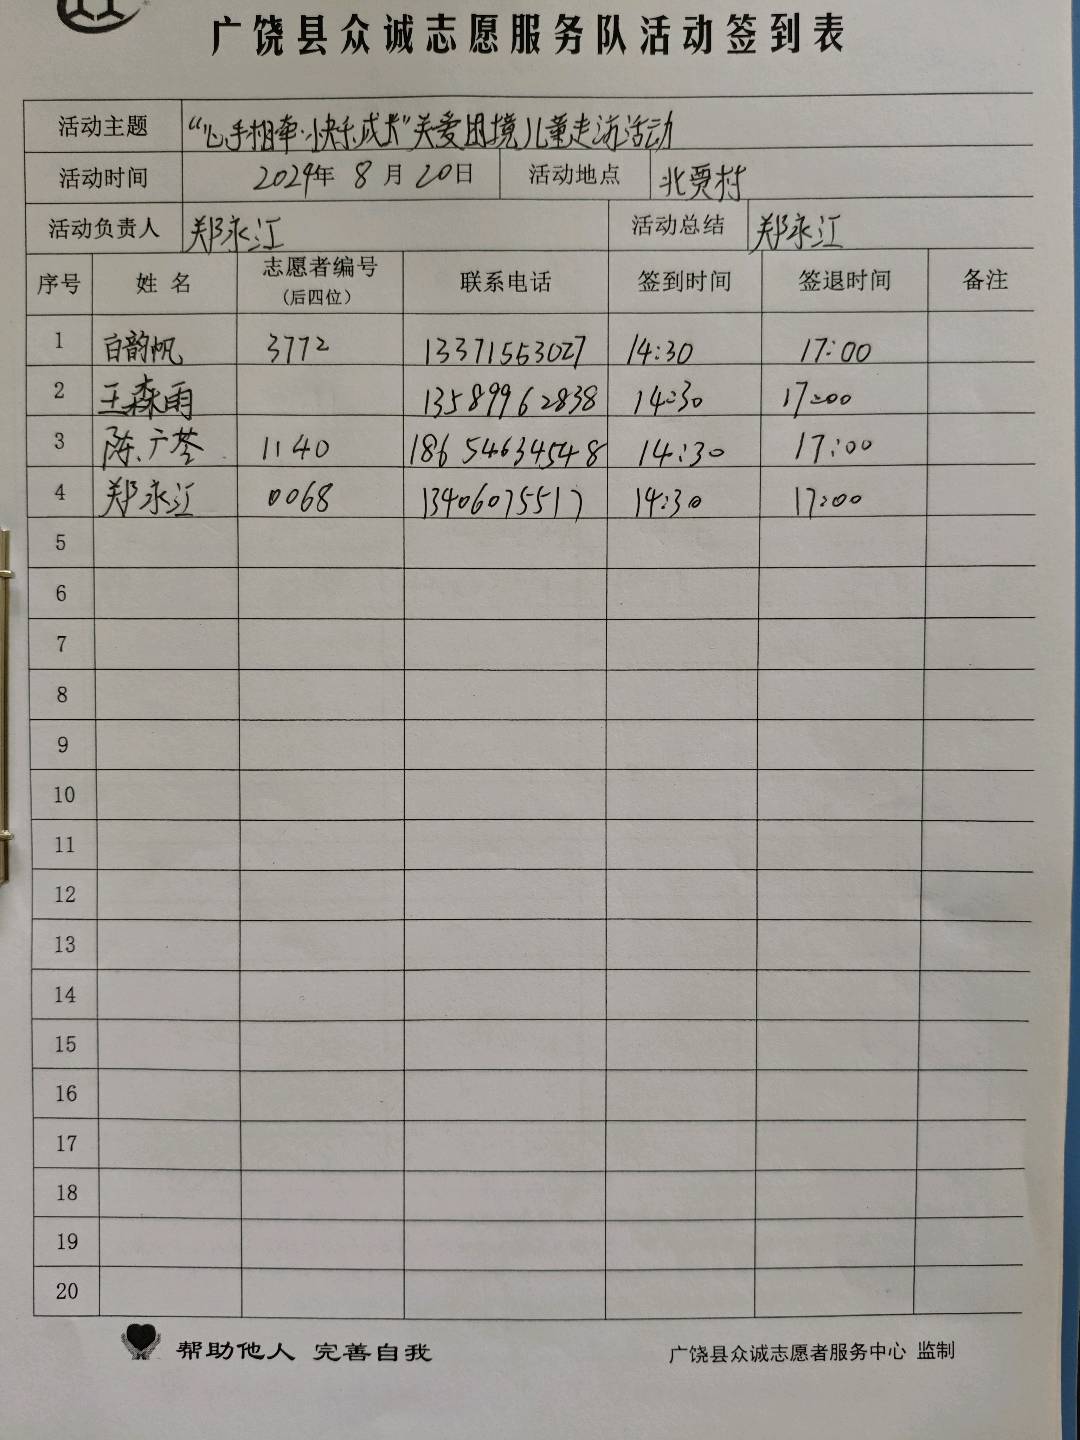 广饶县众诚志愿服务队活动签到表
活动主题 “心手相牵·快乐成长”关爱困境儿童走访活动
活动时间 2024年 8 月 20日 活动地点 北贾村
活动负责人 郑永江 活动总结 郑永江
序号 姓 名 志愿者编号 (后四位) 联系电话 签到时间 签退时间 备注
1 白韵帆 3772 13371553027 14:30 17:00
2 王森雨 13589962838 14:30 17:00
3 陈广荃 1140 18654634548 14:30 17:00
4 郑永江 0068 13406075517 14:30 17:00
5
6
7
8
9
10
11
12
13
14
15
16
17
18
19
20
帮助他人 完善自我 广饶县众诚志愿者服务中心 监制